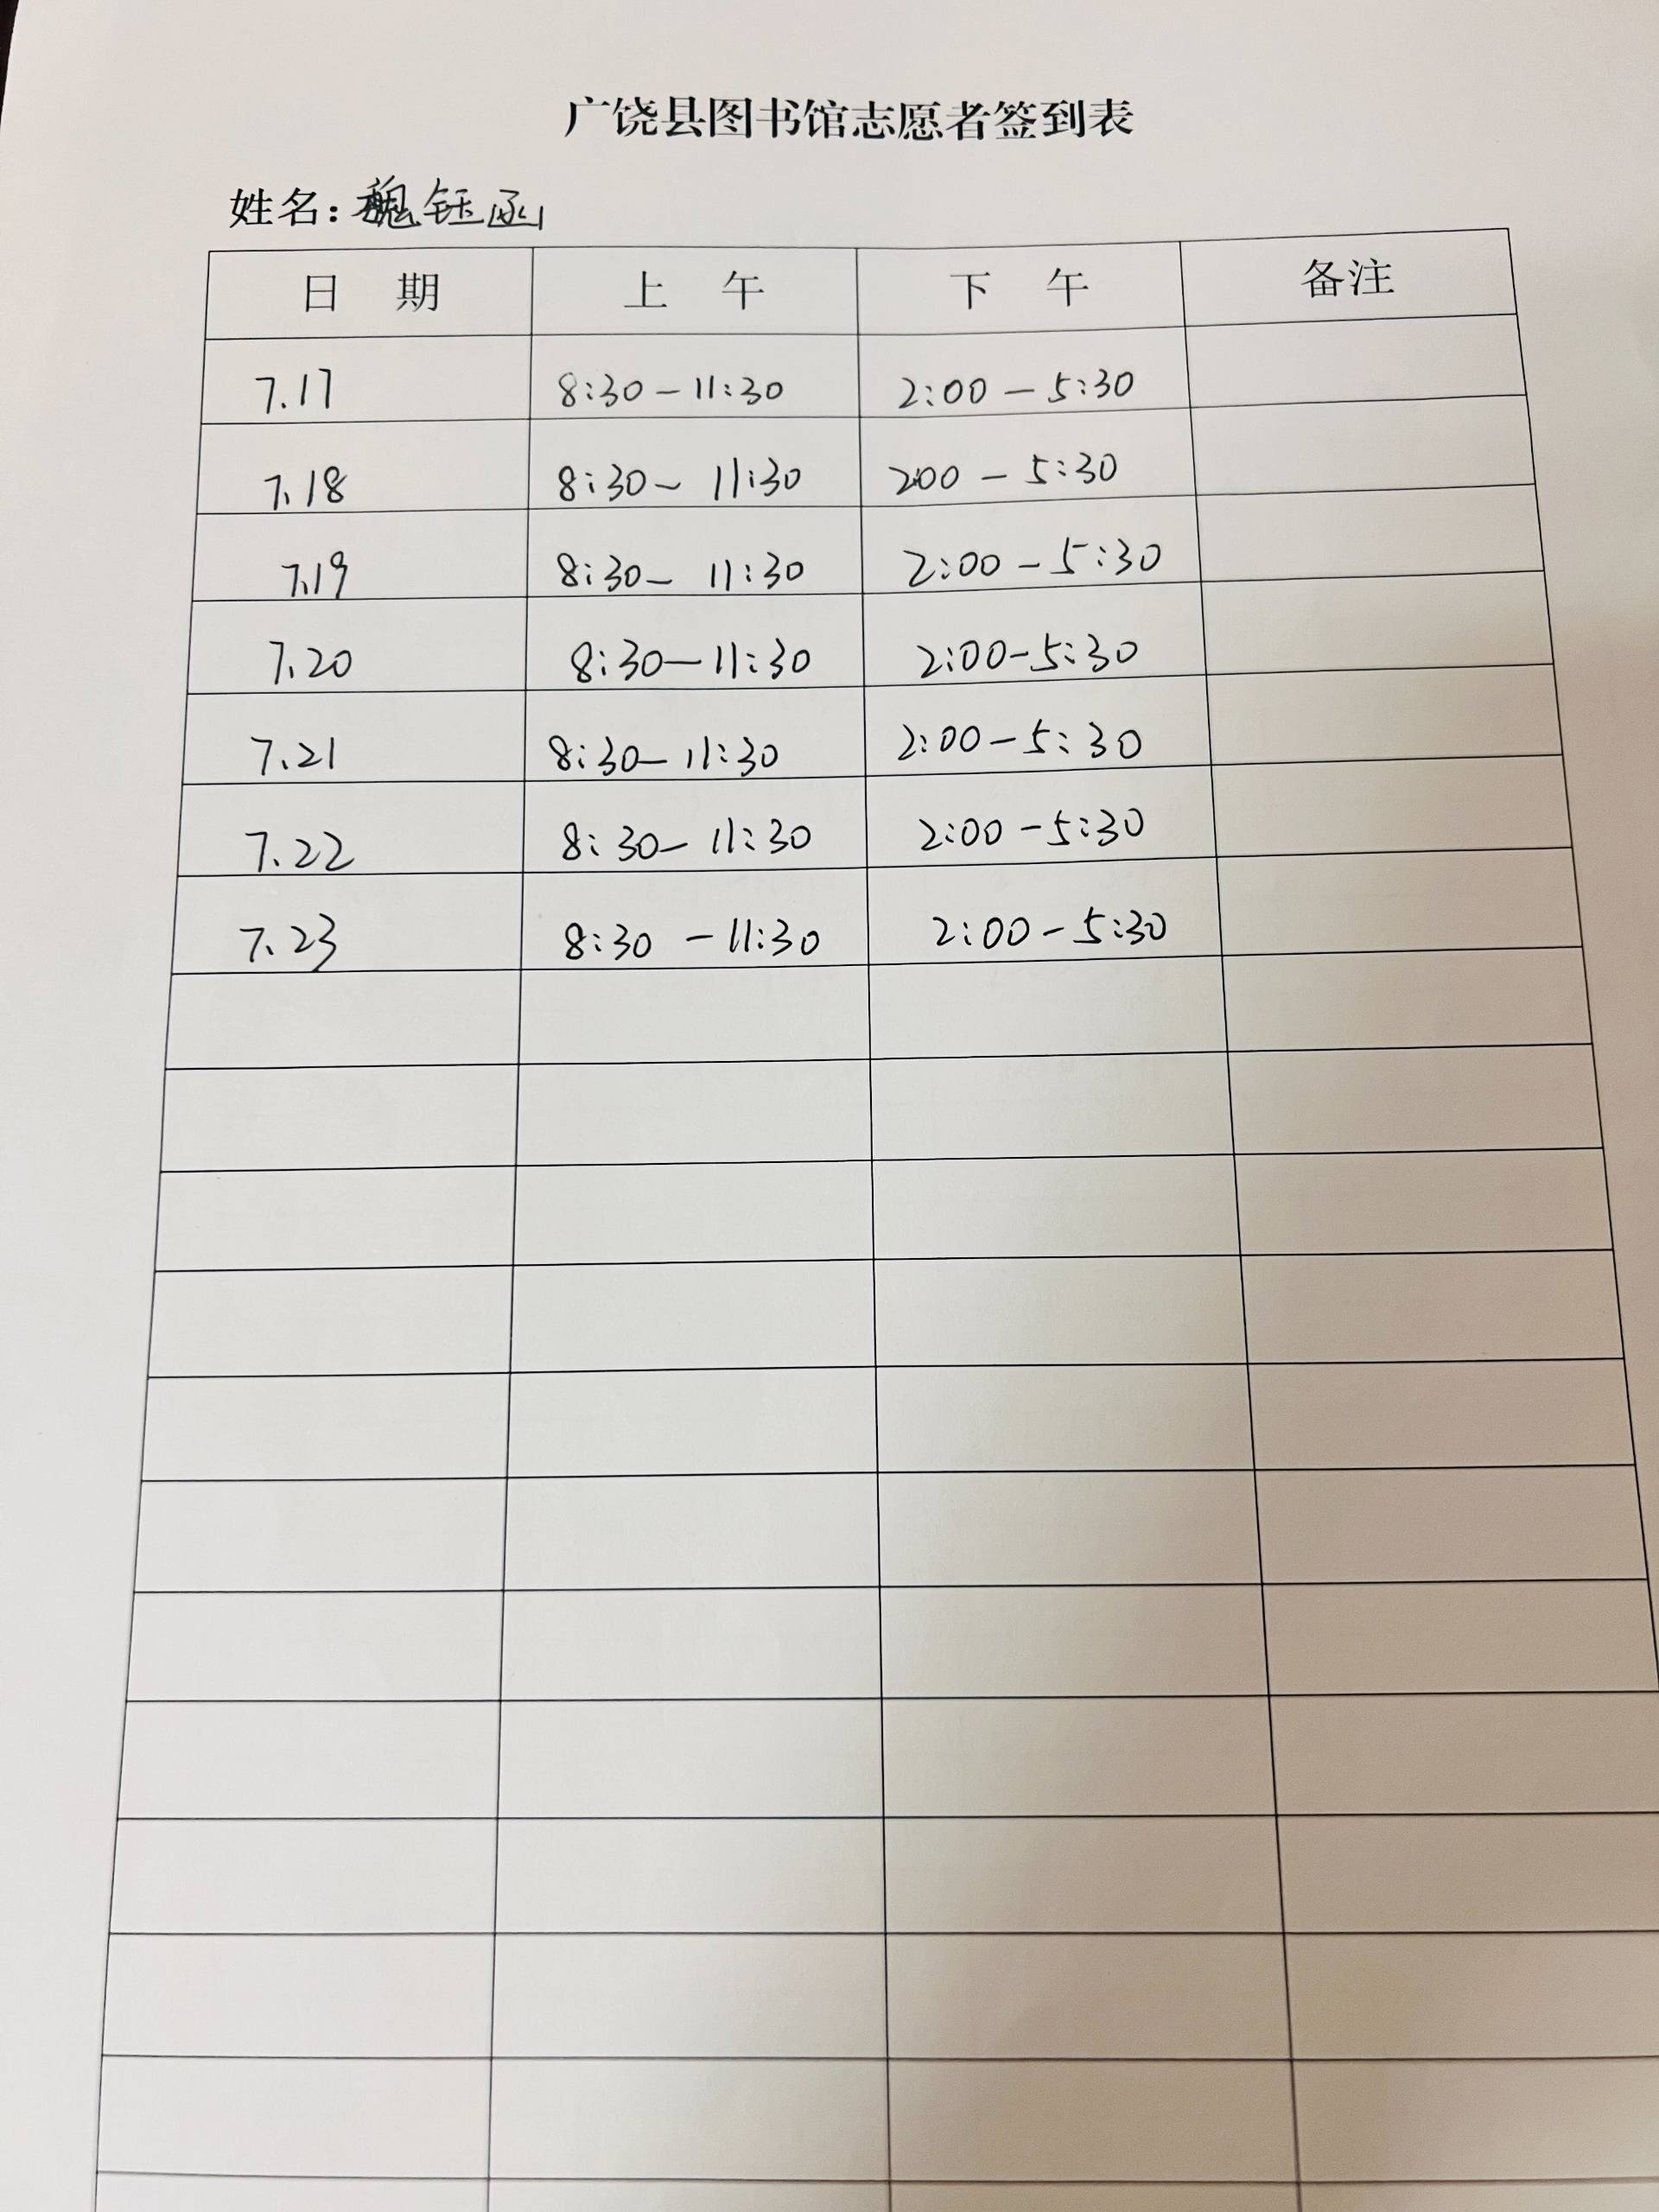 广饶县图书馆志愿者签到表
姓名：魏钰函
日 期 上 午 下 午 备注
7.17 8:30－11:30 2:00－5:30
7.18 8:30－11:30 200－5:30
7.19 8:30－11:30 2:00－5:30
7.20 8:30－11:30 2:00－5:30
7.21 8:30－11:30 2:00－5:30
7.22 8:30－11:30 2:00－5:30
7.23 8:30－11:30 2:00－5:30